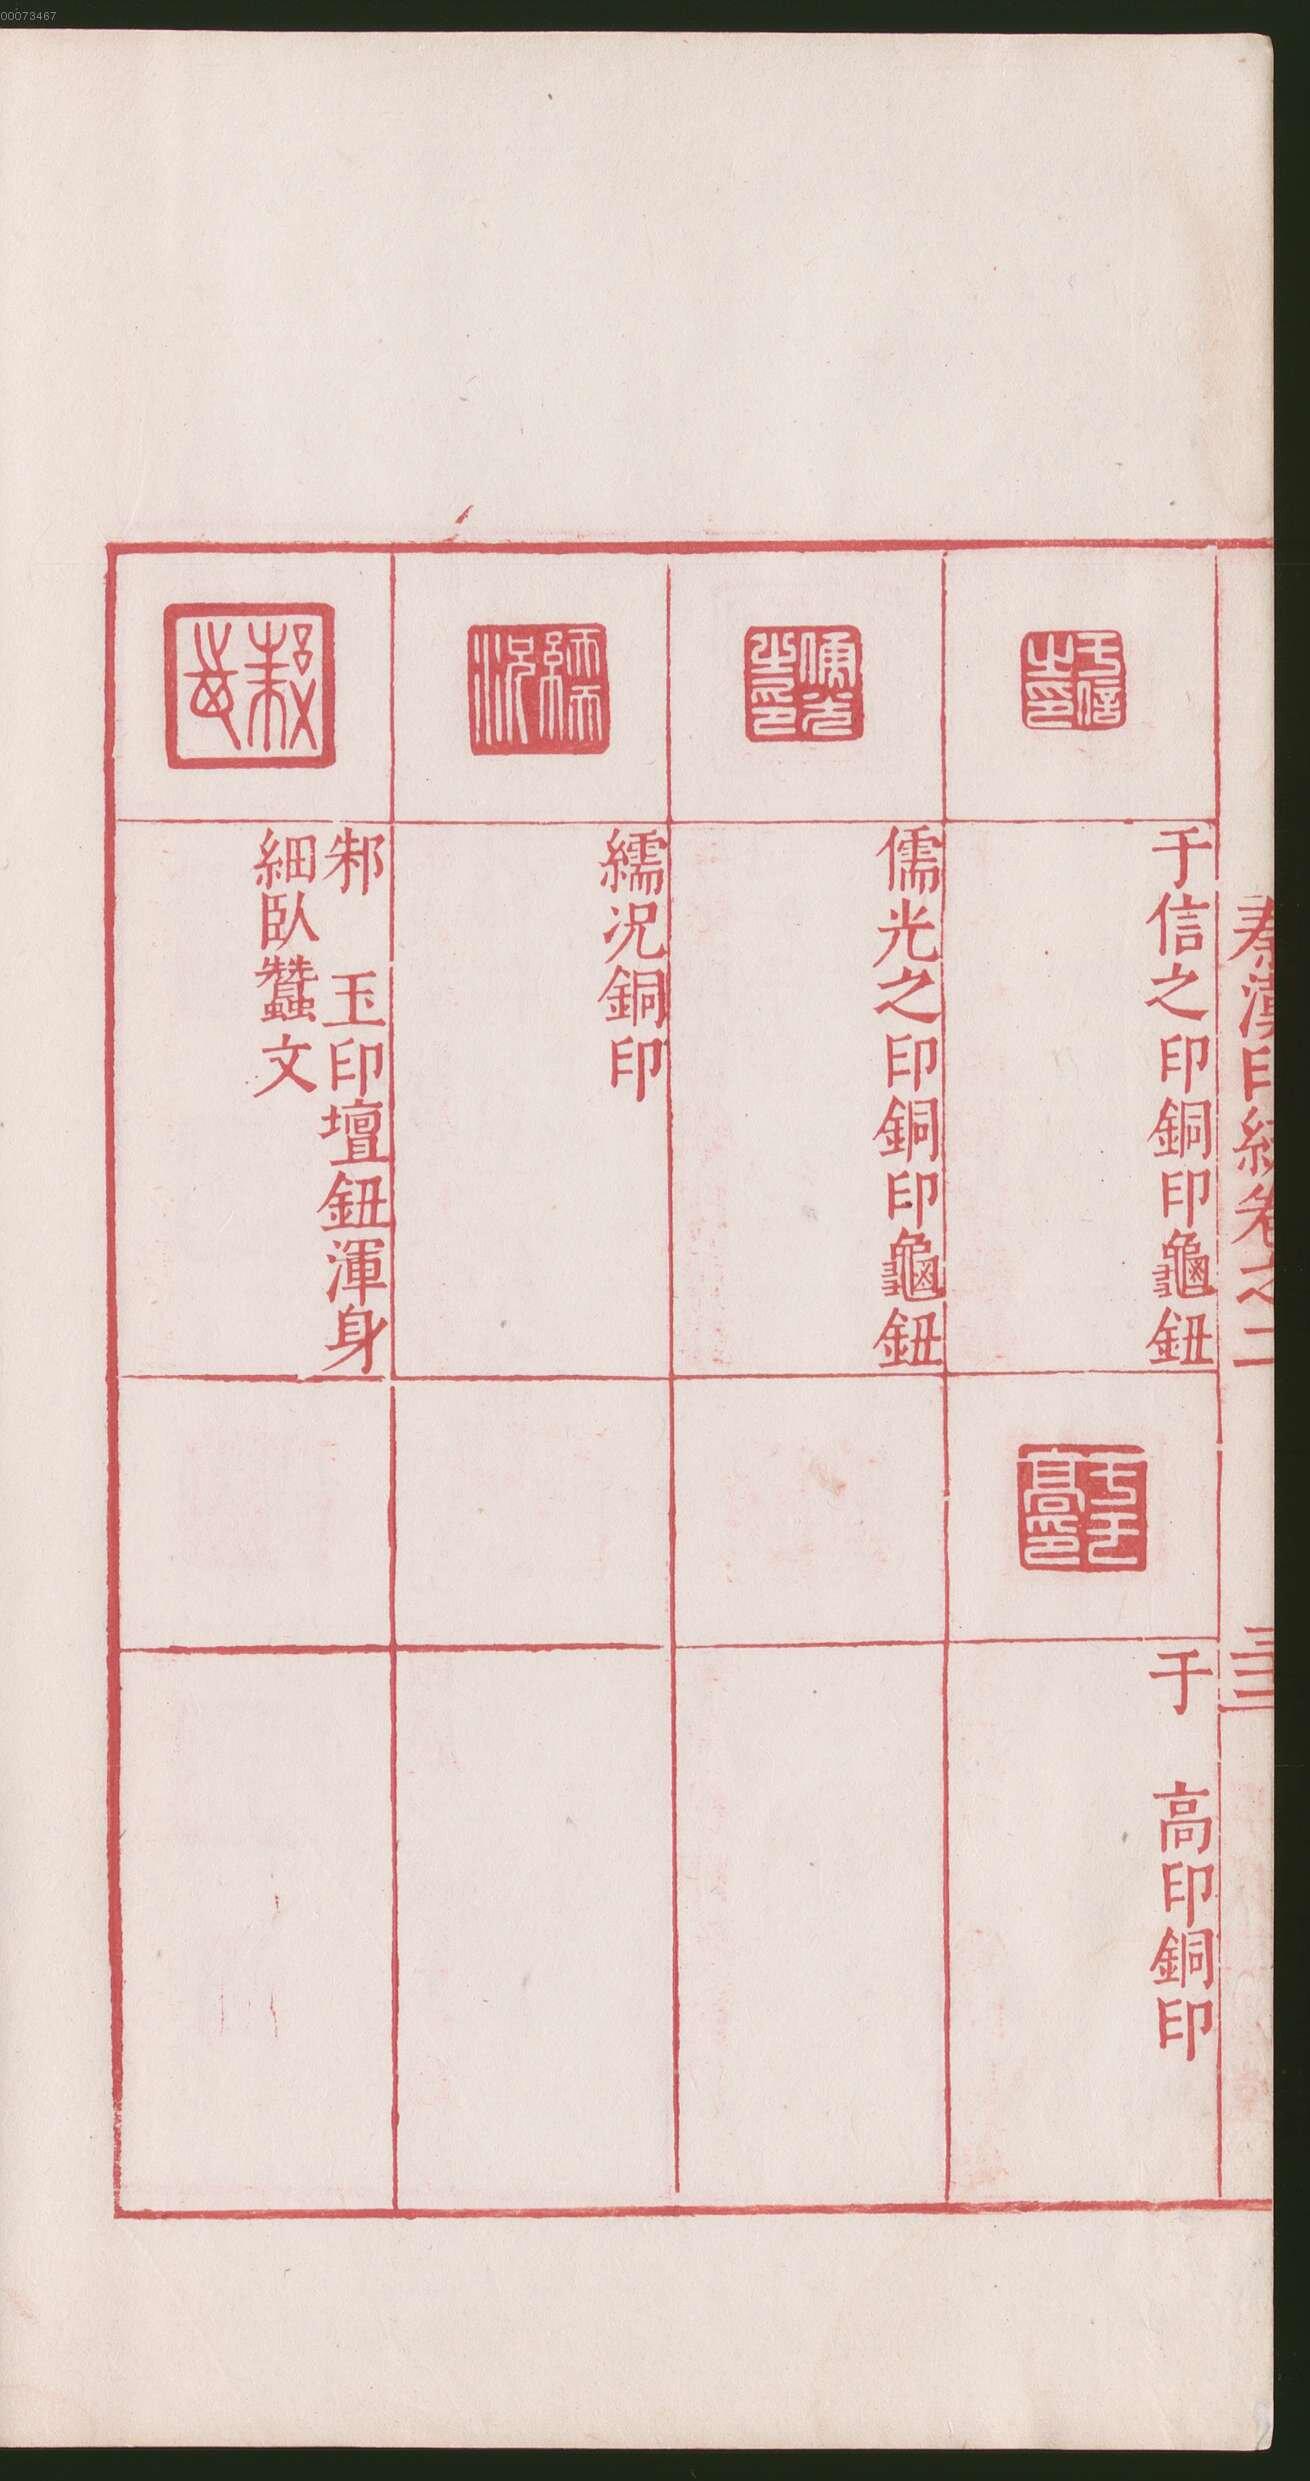 00073467
秦漢印統卷之二
三十二
于信之印銅印龜鈕
于 高印銅印
儒光之印銅印龜鈕
繻况銅印
邾 玉印壇鈕渾身
細臥蠶文